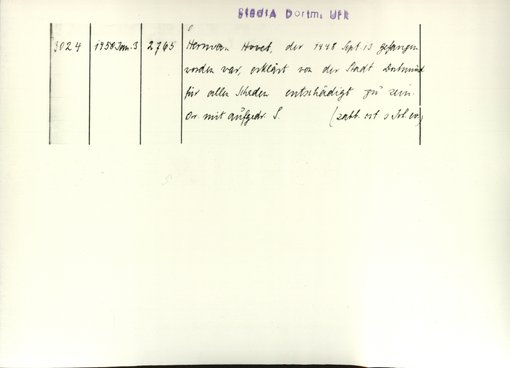 StadtA Dortm. Urk
3024 1450 Jan. 3 2765 Herman Hovel, der 1448 Spt. 13 gefangen
worden war, erklärt von der Stadt Dortmund
für allen Schaden entschädigt zu sein.
Or mit aufgedr. S.